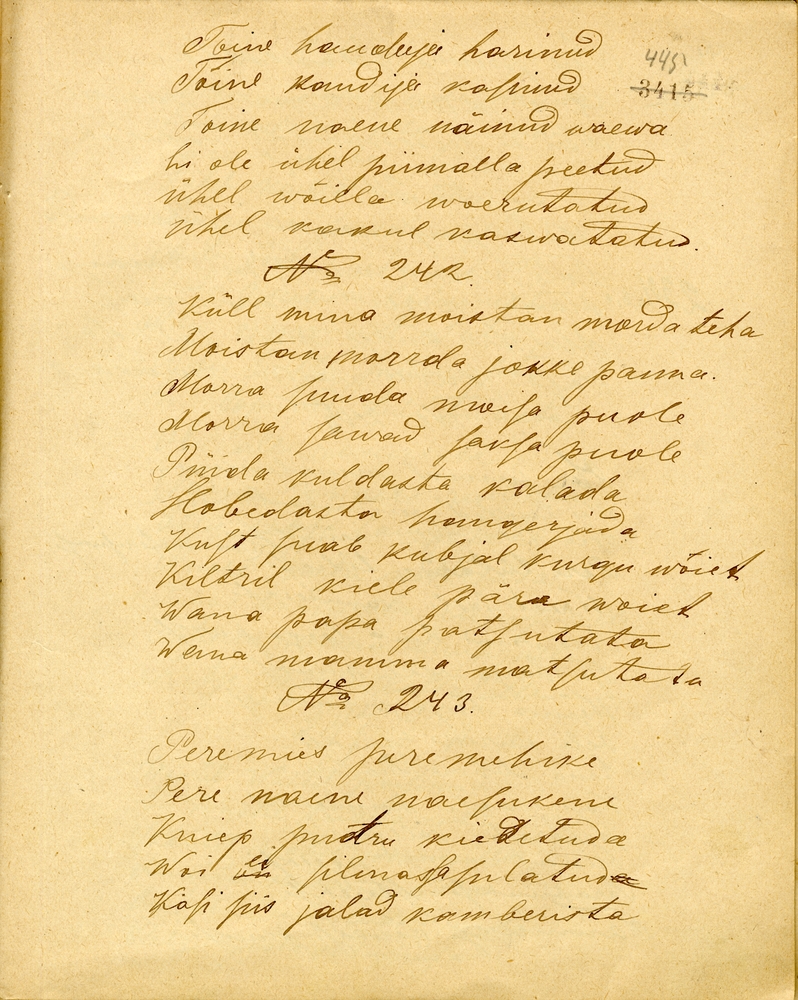 Toine haudeja harinud
445
Tõine kandija kasinud
3415
Toine naene näinud waewa
Ei ole ühel piimalla peetud
Ühel wõilla woerutatud
Ühel kakul kaswatatud.
No 242.
Küll mina moistan morda teha
Moistan morrda jokke panna.
Morra suuda moisa puole
Morra sawad saksa puole
Püida kuldasta kalada
Hobedasta haugerjada
Kust saab kubjal kurgu wõiet
Kiltril kiele pära woiet
Wana papa patsutata
Wana mamma matsutata
No 243.
Peremies peremehike
Pere naene naesukene
Kniep pudru kiedetuda
Woi ei silmassa sulatud
Käsi siis jalad kamberista